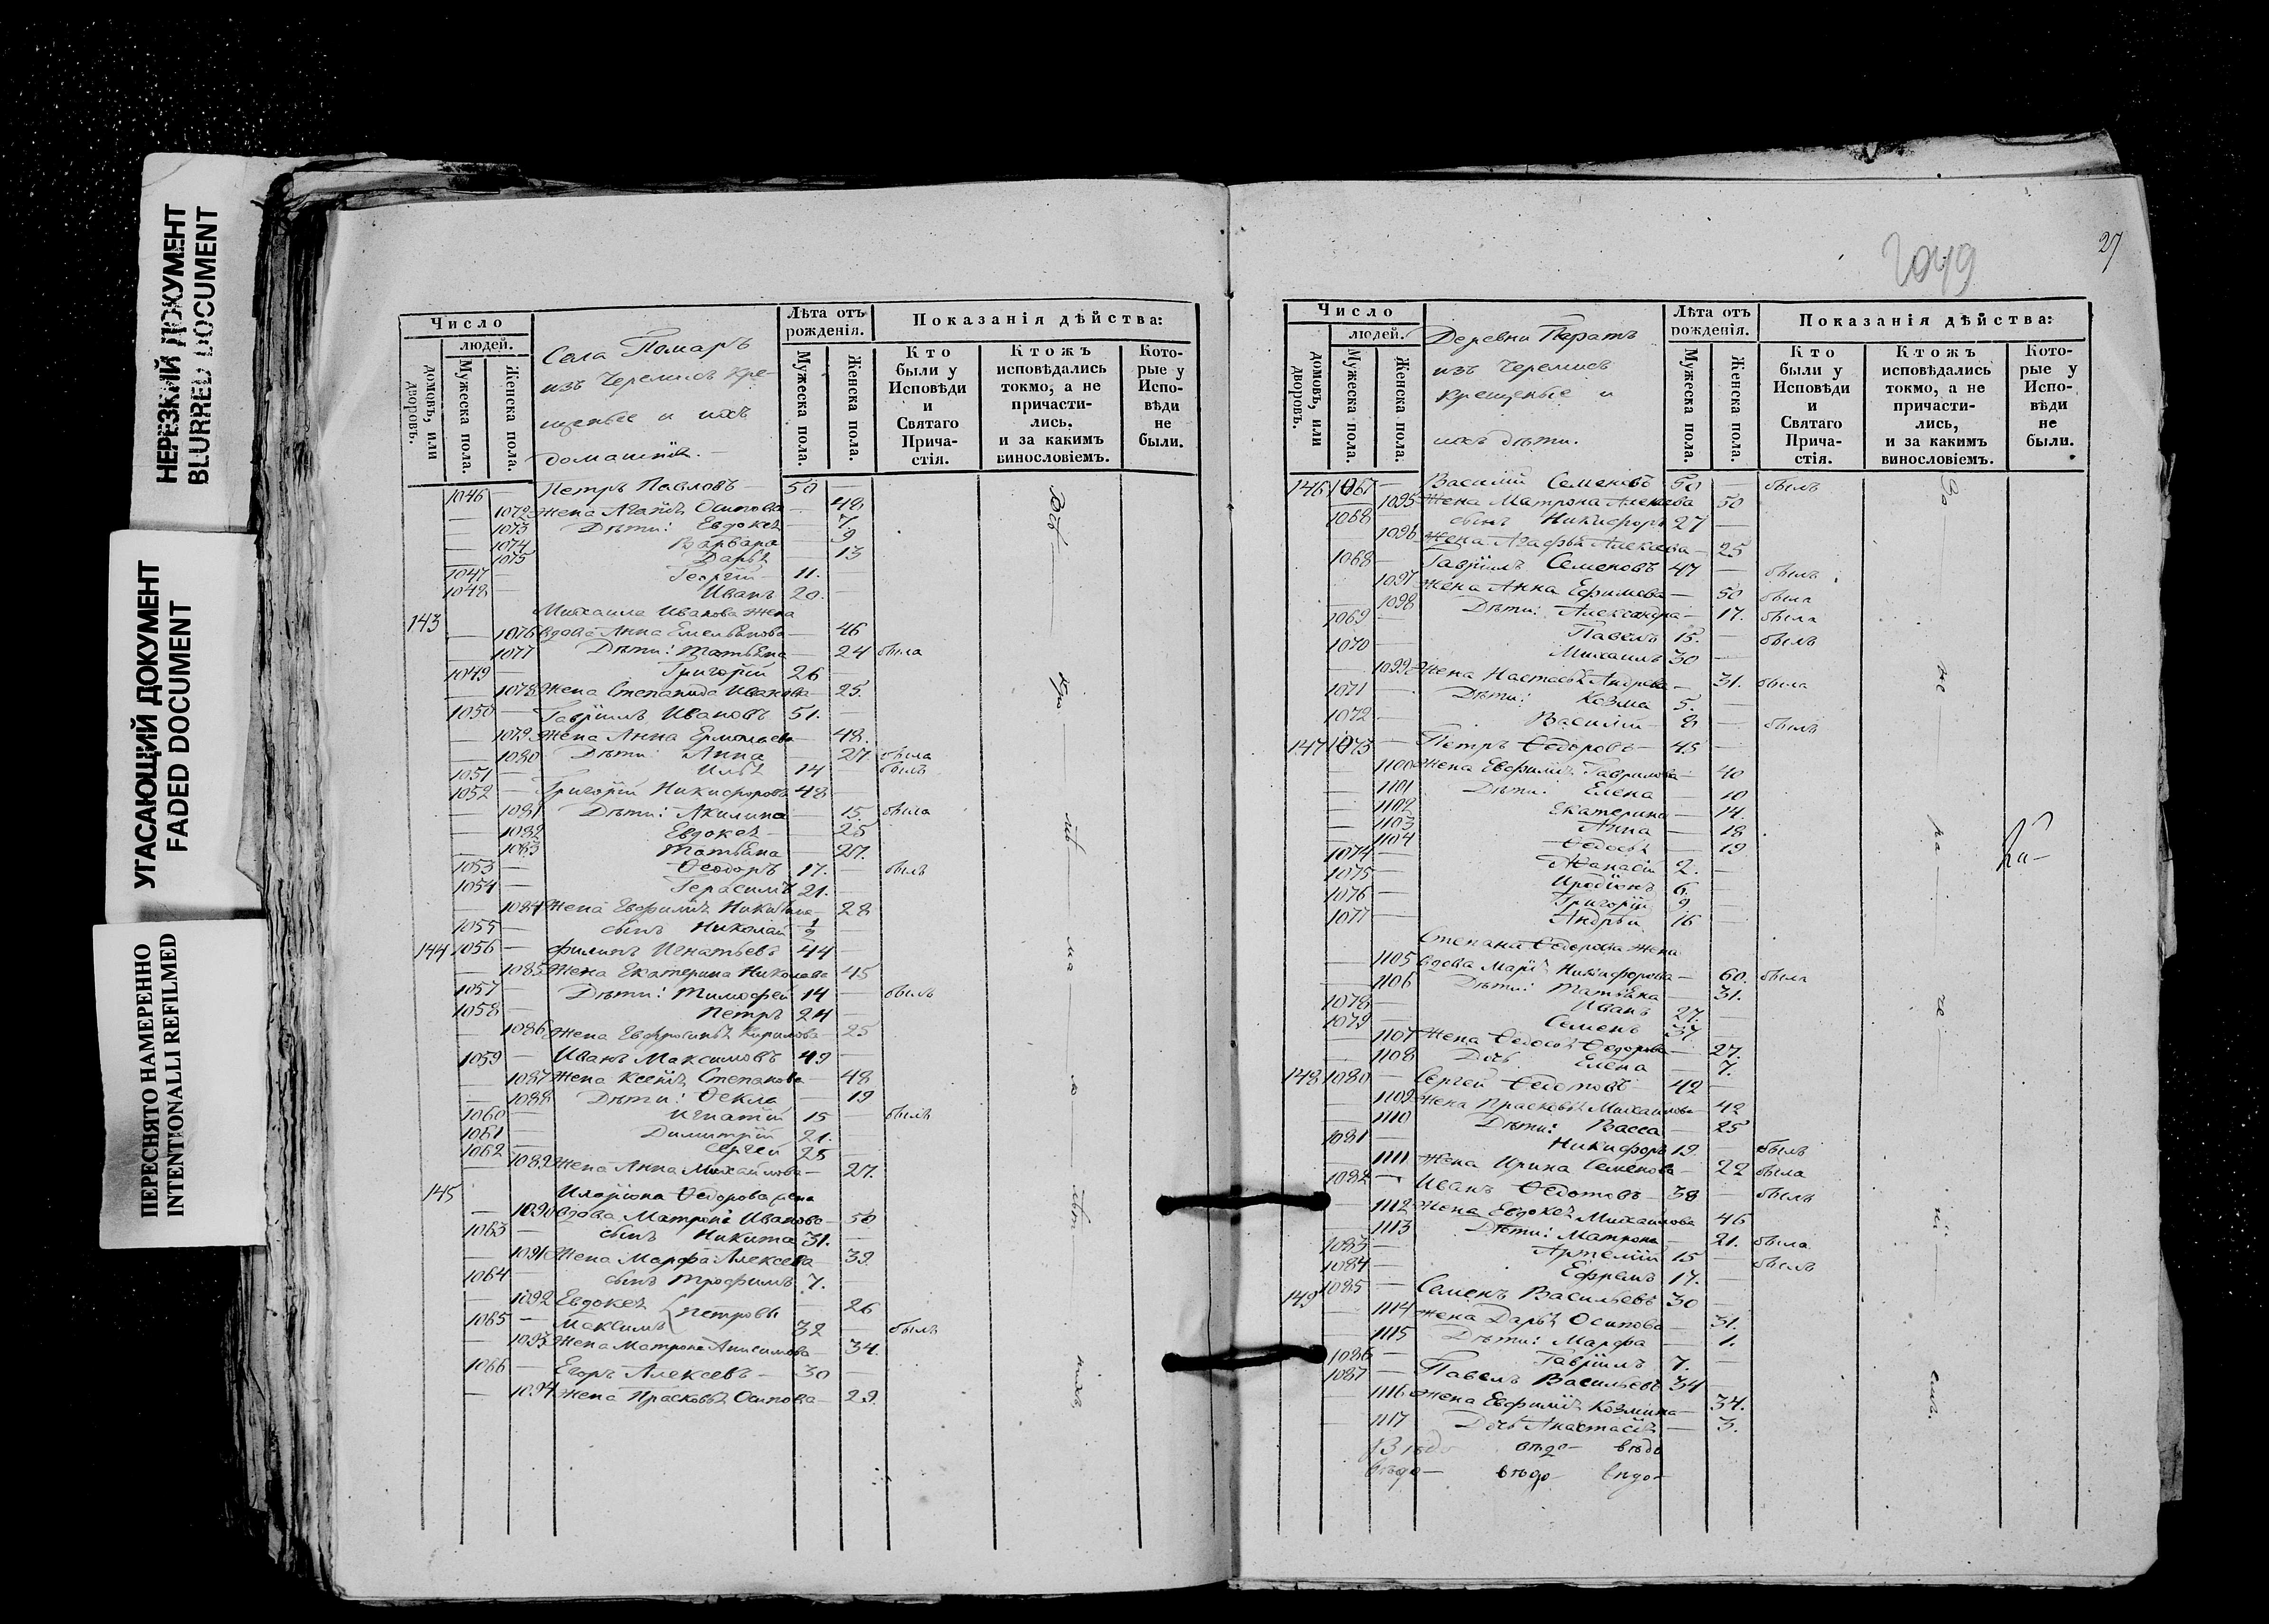 НЕРЕЗКИЙ ДОКУМЕНТ
BLURRED DOCUMENT
УГАСАЮЩИЙ ДОКУМЕНТ
FADED DOCUMENT
ПЕРЕСНЯТО НАМЕРЕННО
INTENTIONALLI REFILMED
Число
людей.
домовъ, или дворовъ.
Мужеска пола.
Женска пола.
Села Помаръ
изъ Черемисъ кре-
щеные и ихъ
домашніе.
Лѣта отъ рожденія.
Мужеска пола.
Женска пола.
Показанія дѣйства:
Кто были у Исповѣди и Святаго Прича-стія.
Ктожъ исповѣдались токмо, а не причасти-лись, и за какимъ винословіемъ.
Кото-рые у Испо-вѣди не были.
1046 — Петръ Павловъ — 50 —
— 1072 Жена Агаѳія Осипова — 48
— 1073 Дѣти: Евдокея — 7
— 1074 Варвара — 9
— 1075 Дарья — 13
1047 — Георгій 11. —
1048 — Иванъ 20. —
143 Михаила Иванова жена
— 1076 вдова Анна Емельянова — 46
— 1077 Дѣти: Татьяна — 24 была
1049 — Григорій 26 —
— 1078 Жена Степанида Иванова — 25.
1050 — Гавріилъ Ивановъ 51. —
— 1079 Жена Анна Ермолаева — 48.
— 1080 Дѣти: Анна — 27. была
1051 — Илья 14 былъ
1052 — Григорій Никифоровъ 48 —
— 1081 Дѣти: Акилина — 15. была
— 1082 Евдокея — 25
— 1083 Татьяна — 27.
1053 — Ѳеодоръ 17. — былъ
1054 — Герасимъ 21. —
— 1084 Жена Евфимія Никитина — 28
1055 — сынъ Николай 1/2 —
144 1056 — Филипъ Игнатьевъ 44 —
— 1085 Жена Екатерина Николаева 45
1057 — Дѣти: Тимофей 14 — былъ
1058 — Петръ 24 —
— 1086 Жена Евфросинья Кирилова — 25
1059 — Иванъ Максимовъ 49 —
— 1087 Жена Ксенія Степанова — 48
— 1088 Дѣти: Ѳекла — 19
1060 — Игнатій 15 — былъ
1061 — Димитрій 21. —
1062 — Сергей 25 —
— 1089 Жена Анна Михайлова — 27.
145 Иларіона Ѳедорова жена
— 1090 вдова Матрона Иванова — 50
1063 — сынъ Никита 31. —
— 1091 Жена Марфа Алексеева — 39.
1064 — сынъ Трофимъ 7. —
— 1092 Евдокея — 26
Петровы
1065 — Максимъ 32 — былъ
— 1093 Жена Матрона Анисимова — 34.
1066 — Егоръ Алексеевъ — 30 —
— 1094 Жена Прасковья Осипова — 29.
27
Число
людей.
домовъ, или дворовъ.
Мужеска пола.
Женска пола.
Деревни Паратъ
изъ Черемисъ
крещеные и
ихъ дѣти.
Лѣта отъ рожденія.
Мужеска пола.
Женска пола.
Показанія дѣйства:
Кто были у Исповѣди и Святаго Прича-стія.
Ктожъ исповѣдались токмо, а не причасти-лись, и за какимъ винословіемъ.
Кото-рые у Испо-вѣди не были.
146 1067 — Василій Семеновъ 50 — былъ
— 1095 Жена Матрона Алексеева 50
1068 сынъ Никифоръ 27 —
— 1096 Жена Агафья Алексеева — 25
1068 — Гавріилъ Семеновъ 47 — былъ
1097 Жена Анна Ефимова — 50 была
1098 Дѣти: Александра — 17. была
1069 — Павелъ 15. — былъ
1070 — Михаилъ 30 —
1099 Жена Настасья Андреева — 31. была
1071 — Дѣти: Козма 5. —
1072 — Василій 8 — былъ
147 1073 — Петръ Ѳедоровъ — 45 —
— 1100 Жена Евфимія Гаврилова — 40
— 1101 Дѣти: Елена — 10
— 1102 Екатерина — 14.
— 1103 Анна — 18
— 1104 Ѳедосья — 19
1074 — Аѳанасій 2. —
1075 — Иродіонъ 6. —
1076 — Григорій 9 —
1077 — Андрей 16 —
Степана Ѳедорова жена
— 1105 вдова Марія Никифорова — 60. была
— 1106 Дѣти: Татьяна — 31.
1078 — Иванъ 27. —
1079 — Семенъ 37 —
— 1107 Жена Ѳедосья Ѳедорова — 27.
— 1108 Дочь Елена — 7.
148 1080 — Сергей Ѳедотовъ 42 —
— 1109 Жена Прасковья Михайлова — 42
— 1110 Дѣти: Васса — 25
1081 — Никифоръ 19 былъ
— 1111 Жена Ирина Семенова — 22 была
1082 — Иванъ Ѳедотовъ — 38 — былъ
— 1112 Жена Евдокея Михайлова 46
— 1113 Дѣти: Матрона — 21. была
1083 — Артемій 15 — былъ
1084 — Ефремъ 17. —
149 1085 — Семенъ Васильевъ 30 —
— 1114 Жена Дарья Осипова — 31.
— 1115 Дѣти: Марфа — 1.
1086 — Гавріилъ 7. —
1087 — Павелъ Васильевъ 34 —
— 1116 Жена Евфимія Козмина — 34.
— 1117 Дочь Анастасія — 3.